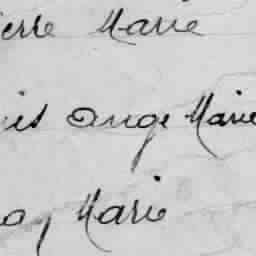 ierre Marie
is ange Marie
a, Marie